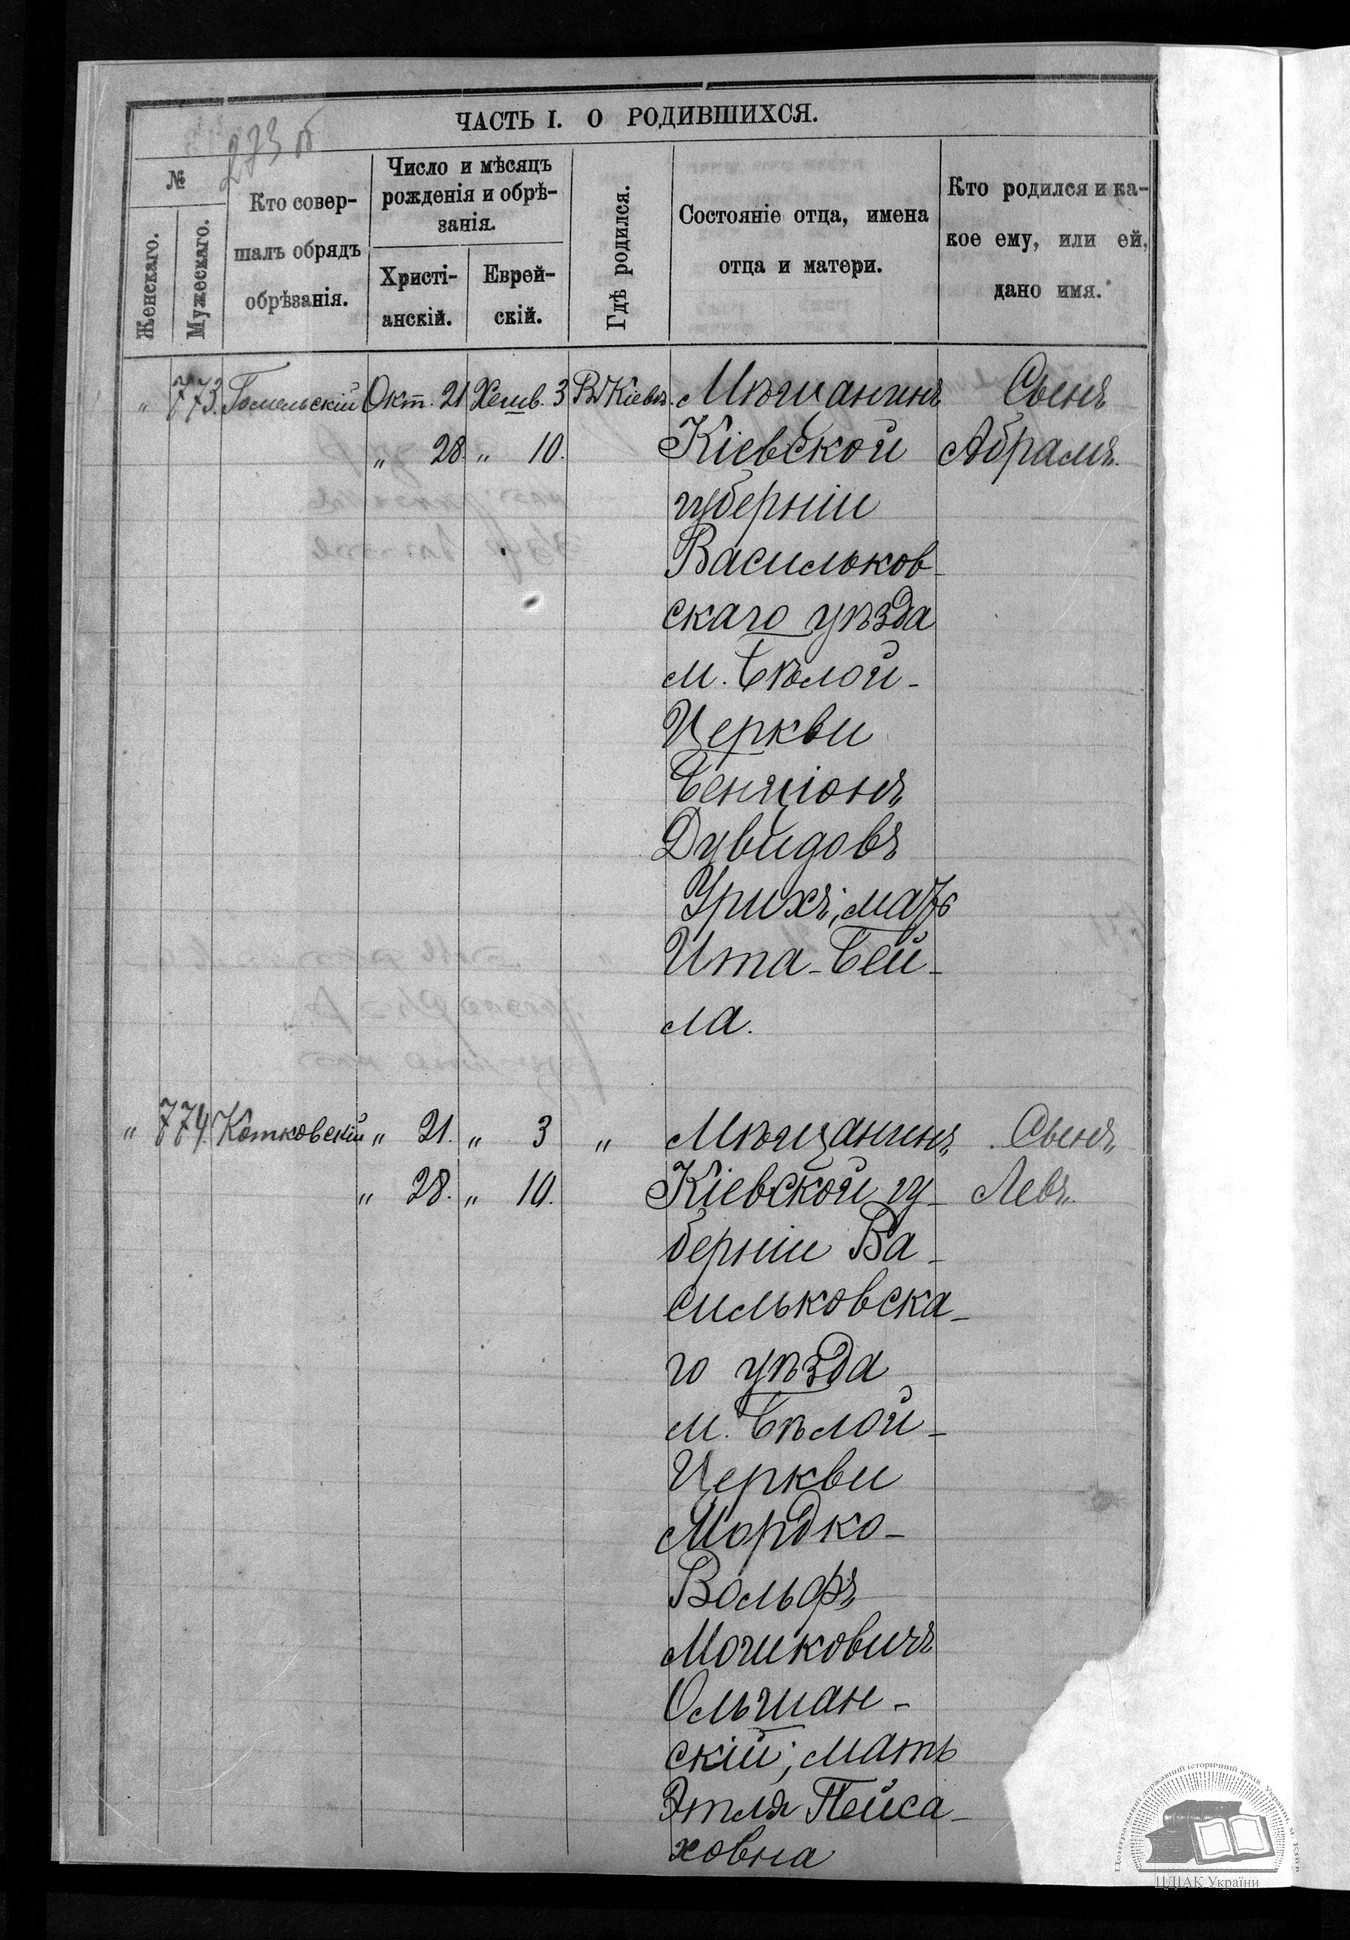 273 об
ЧАСТЬ I. О РОДИВШИХСЯ.
№
Женскаго.
Мужескаго.
Кто совер-
шалъ обрядъ
обрѣзанія.
Число и мѣсяцъ
рожденія и обрѣ-
занія.
Христі-
анскій.
Еврей-
скій.
Гдѣ родился.
Состояніе отца, имена
отца и матери.
Кто родился и ка-
кое ему, или ей,
дано имя.
„ 773 Гомельскій Окт. 21 Хешв. 3 Въ Кіевѣ. Мѣщанинъ Сынъ
„ 28. „ 10. Кіевской Абрамъ.
губерніи
Васильков-
скаго уѣзда
м. Бѣлой-
Церкви
Бенціонъ
Дувидовъ
Урихъ; мать
Ита-Бей-
ла.
„ 774. Котковскій „ 21. „ 3 „ Мѣщанинъ Сынъ
„ 28. „ 10. Кіевской гу- Левъ.
берніи Ва-
сильковска-
го уѣзда
м. Бѣлой-
Церкви
Мордко-
Вольфъ
Мошковичъ
Ольшан-
скій; мать
Этля Пейса-
ховна
Центральний державний історичний архів України, м. Київ
ЦДІАК України